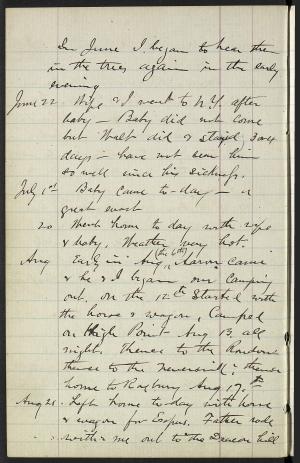 In June I began to hear them
in the trees again in the early
evening
June 22 Wife & I went to N.Y. after
baby — Baby did not come
but Walt did & stayed 3 or 4
days — have not seen him
so well since his sickness.
July 1st Baby came to-day — a
great event
20 Went home to day with wife
& baby, Weather very hot.
Aug Early in Aug, (the 6th) Aaron came
& he & I began our Camping
out, on the 12th Started with
the horse & wagon, Camped
on High Point Aug 13, all
night, thence to the Rondout
thence to the Neversink; thence
home to Roxbury Aug 17th
Aug 21 - Left home to-day with horse
& wagon for Esopus. Father rode
with me out to the Deacon hill